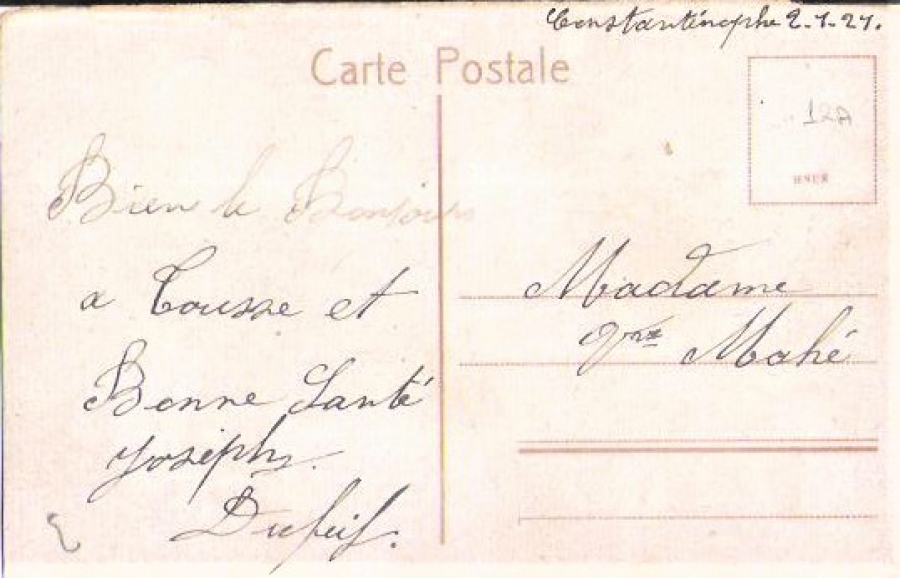 Constantinople 2.1.21.
Carte Postale
Bien le Bonjour
a Tousse et
Bonne Santé
Joseph
Madame
Vve Mahé